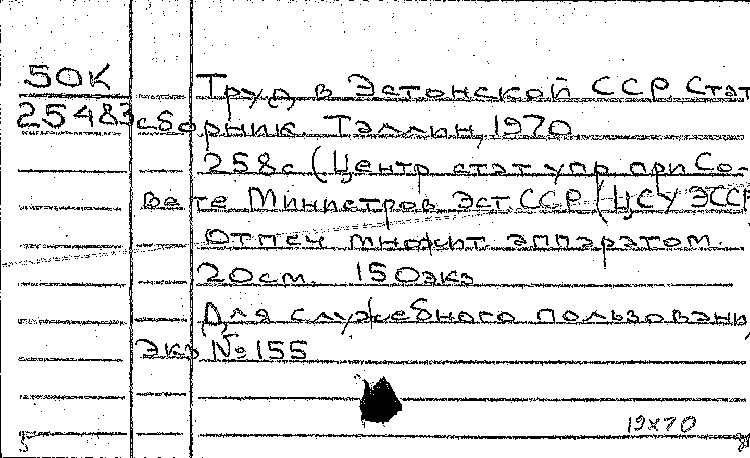 50К Труд в Эстонской ССР. Стат
25483 сборник. Таллин, 1970.
258с (Центр стат упр при Со-
вете Министров Эст.ССР (ЦСУ ЭССР
Отпеч множит аппаратом.
20см. 150экз
Для служебного пользовани
экз №155
19х70